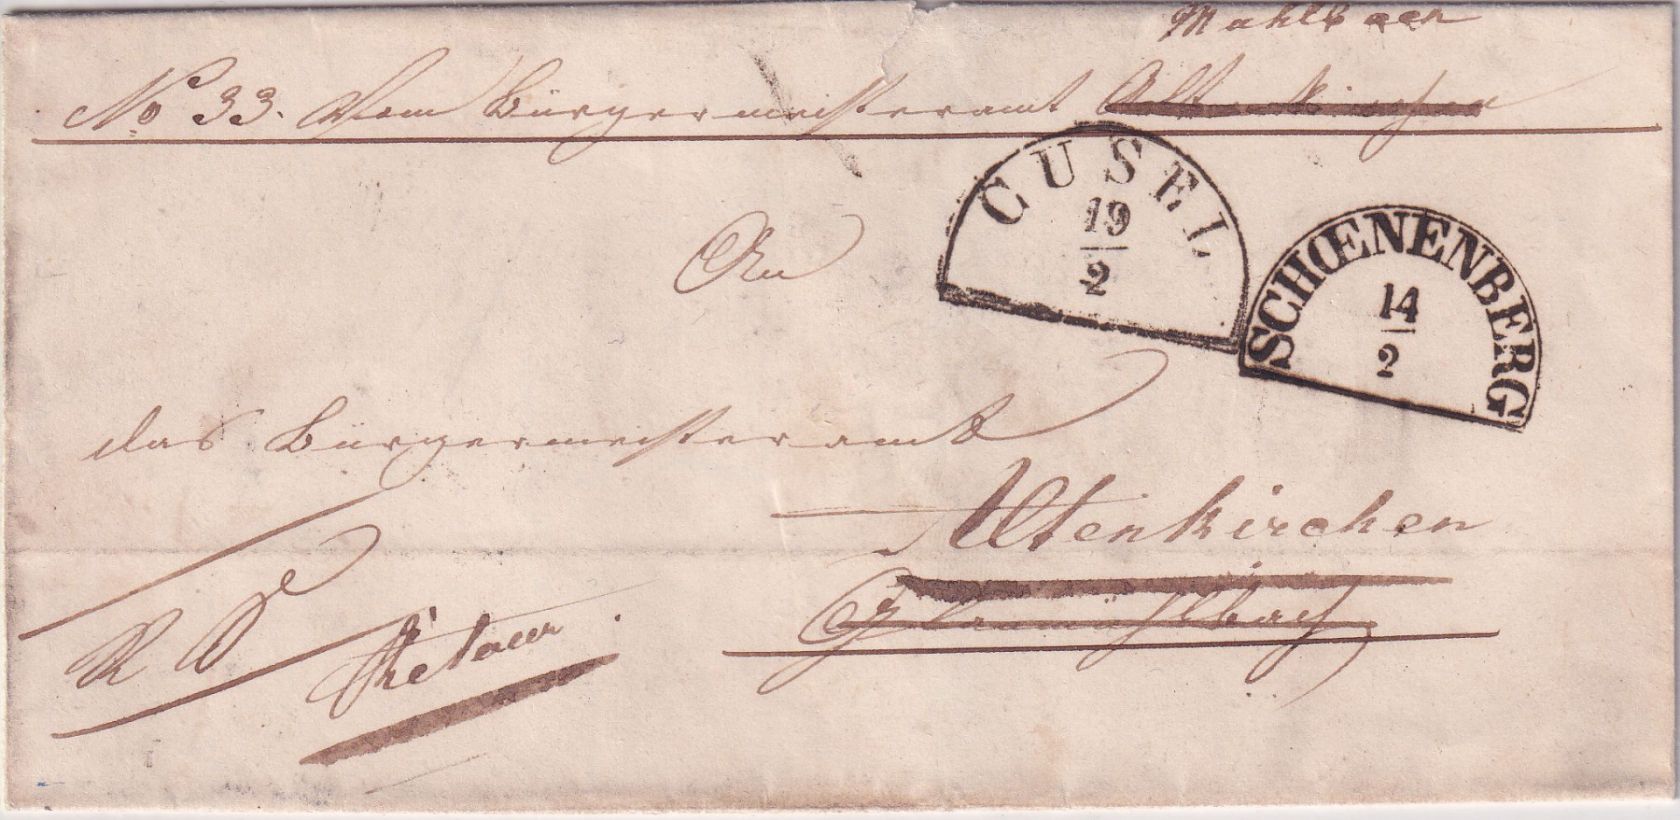 Mühlbach
No 33. Vom Bürgermeisteramt Altenkirchen
CUSEL
19
2
SCHŒNENBERG
14
2
An
das Bürgermeisteramt
Altenkirchen
Glanmühlbach
R S
Retour